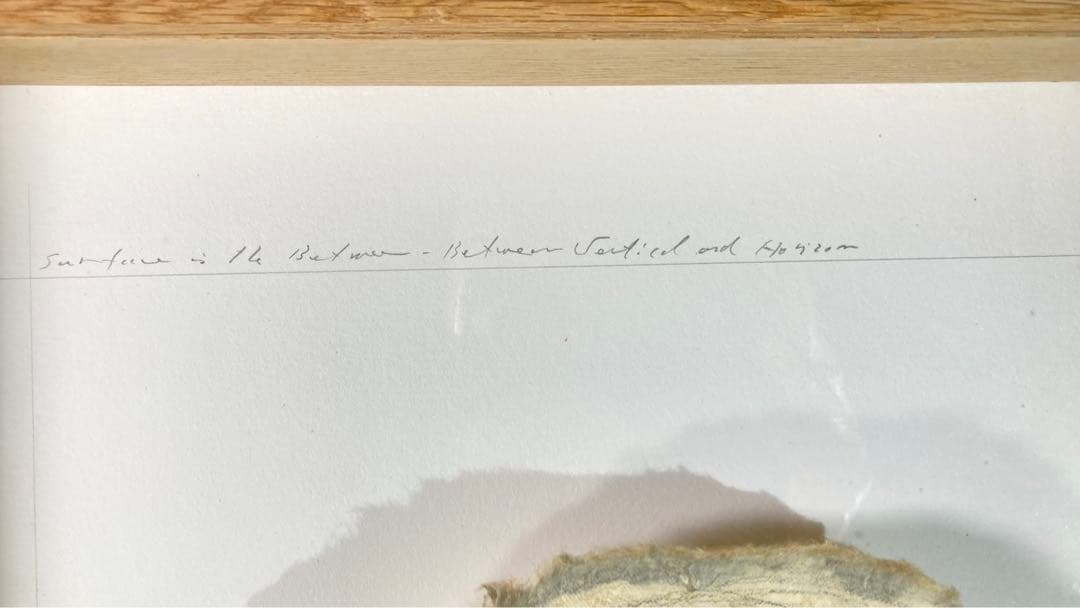 Surface is the Between - Between Vertical and Horizon